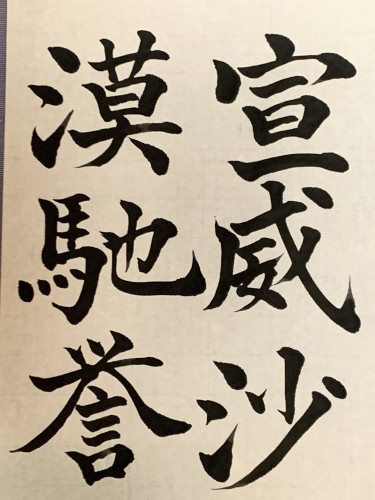 宣威沙
漠馳誉